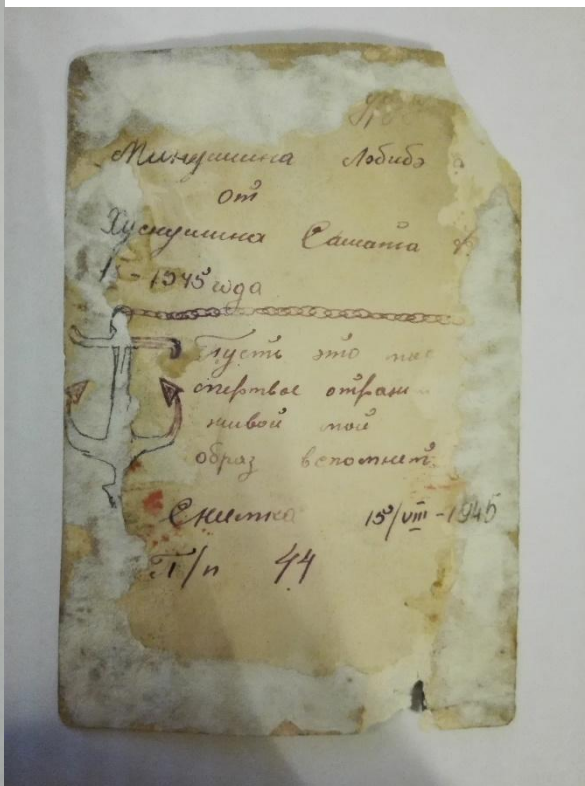 Минушина Лобибэ
от
Хуснушина Сашата
1945 года
Пусть это
мертвое
живой мой
образ вспомнит
Снимка 15/VIII-1945
П/п 44